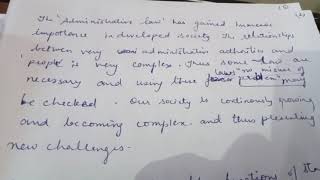 The "Administrative law" has gained Immense
Importance in developed society. The relationships
between very administrative authorities and
people is very complex. Thus some law are
necessary and using these laws "no misuse of
problem" may
be checked. Our society is continously growing
and becoming complex and thus presenting
new challenges.